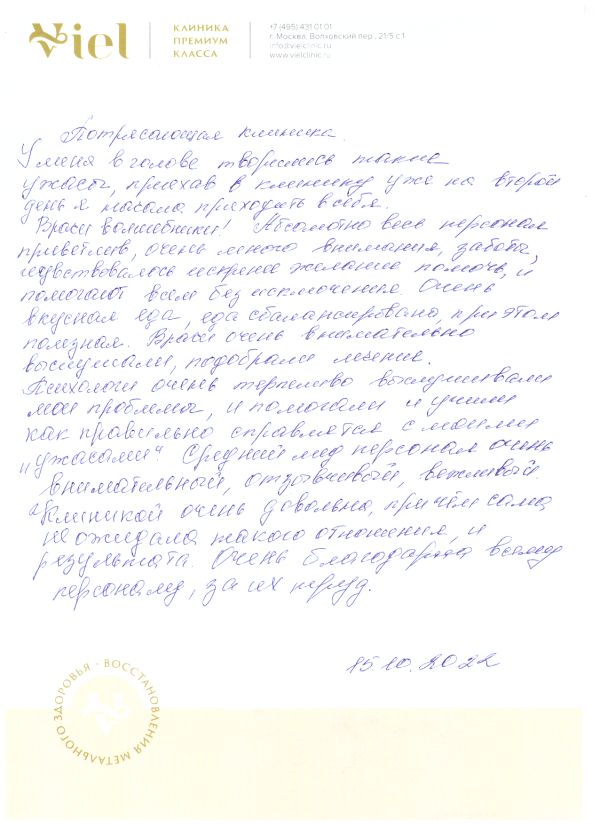 Viel
КЛИНИКА
ПРЕМИУМ
КЛАССА
+7 (495) 431 01 01
г. Москва, Волховский пер., 21/5 с.1
info@vielclinic.ru
www.vielclinic.ru
Потрясающая клиника.
У меня в голове творились такие
ужасы, приехав в клинику уже на второй
день я начала приходить в себя.
Врачи волшебники! Абсолютно весь персонал
приветлив, очень много внимания, заботы,
чувствовалось искренее желание помочь, и
помогают всем без исключения. Очень
вкусная еда, еда сбалансирована, при этом
полезная. Врачи очень внимательно
выслушали, подобрали лечение.
Психологи очень терпеливо выслушивали
мои проблемы, и помогали и учили
как правильно справлятся с моими
"ужасами". Средний мед персонал очень
внимательный, отзывчивый, вежливый.
Клиникой очень довольна, причём сама
не ожидала такого отношения, и
результата. Очень благодарна всему
персоналу, за их труд.
15.10.2022
ВОССТАНОВЛЕНИЯ МЕТАЛЬНОГО ЗДОРОВЬЯ